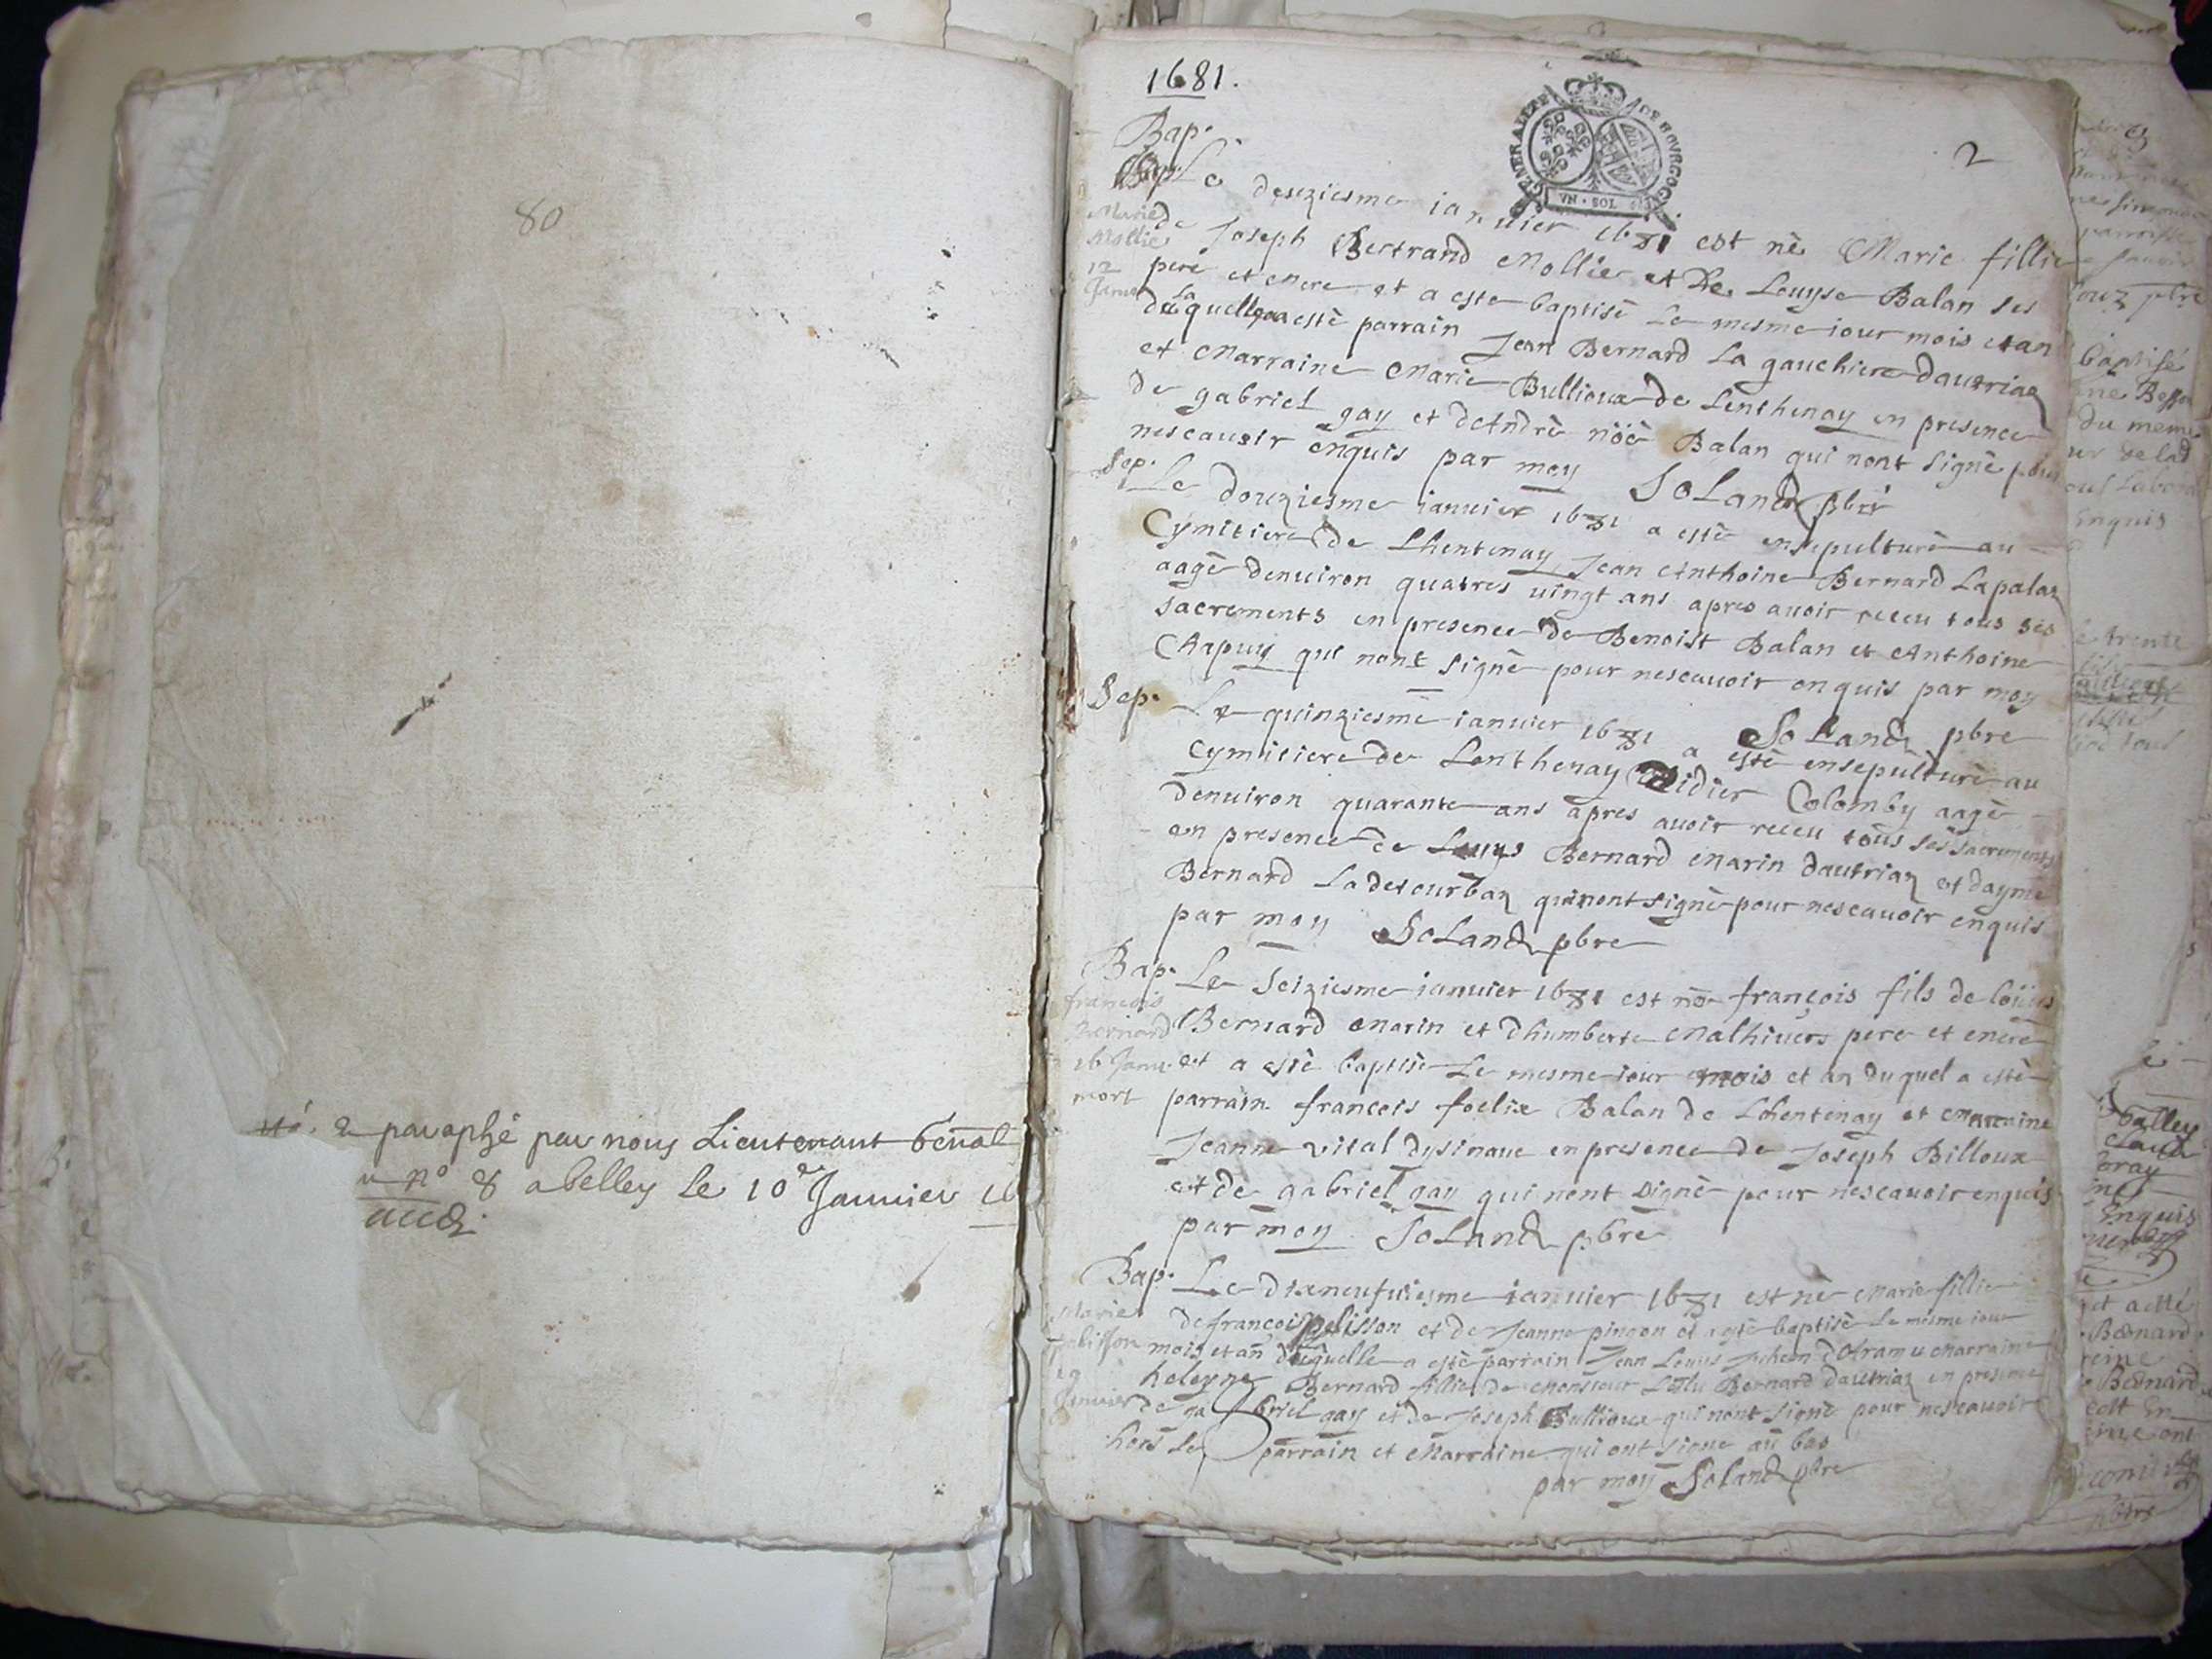 80
et paraphé par nous Lieutenant General
n° 8 a belley le 10e Januier
1681.
2
GENERALITE DE BOVRGOG
VN · SOL
Bap.
Le iannier 1681 est nè Marie fillie
Marie
Mollie
12
Janu
de Joseph Bertrand Mollie et de Louyse Balan ses
pere et mere et a este baptisè Le mesme iour mois et an
de Laquelle a estè parrain Jean Bernard La gauchiere dautriaz
et Marraine Marie Bullioux de Lenthenay en presence
de gabriel gay et de Andrè nöè Balan qui nont signè pour
nescauoir enquis par moy SoLand pbre
Sep. Le douziesme ianuier 1681 a estè ensepulturè au
Cymitiere de Lhentenay Jean Anthoine Bernard Lapalaz
aagè denuiron quatres uingt ans apres auoir receu tous ses
sacrements en presence de Benoist Balan et Anthoine
Chapuy qui nont signè pour nescauoir enquis par moy
SoLand pbre
Sep. Le quinziesme ianuier 1681 a estè ensepulturè au
Cymitiere de Lenthenay Didier Colomby aagè
denuiron quarante ans apres auoir receu tous ses sacrements
en presence de Louys Bernard Marin dautriaz et dayme
Bernard Ladetourbaz qui nont signè pour nescauoir enquis
par moy SoLand pbre
Bap. Le Seiziesme ianuier 1681 est nè françois fils de loüis
francois
Bernard
16 Janu.
mort
Bernard Marin et dhumberte Malhiuers pere et mere
et a estè baptisè Le mesme iour mois et an du quel a estè
parrain francois foelix Balan de Lhentenay et Marraine
Jeanne vital dysinaue en presence de Joseph Billoux
et de gabriel gay qui nont signè pour nescauoir enquis
par moy SoLand pbre
Bap. Le dixneufuiesme ianuier 1681 est nè Marie fillie
Marie
pelisson
19
Januier
de francois pelisson et de Jeanne pingon et a estè baptisè Le mesme iour
mois et an de laquelle a estè parrain Jean Louys et Marraine
heleyne Bernard fillie de Monsieur Bernard dautriaz en presence
de gabriel gay et de Joseph Bullioux qui nont signè pour nescauoir
hors Le parrain et Marraine qui ont signe au bas
par moy SoLand pbre